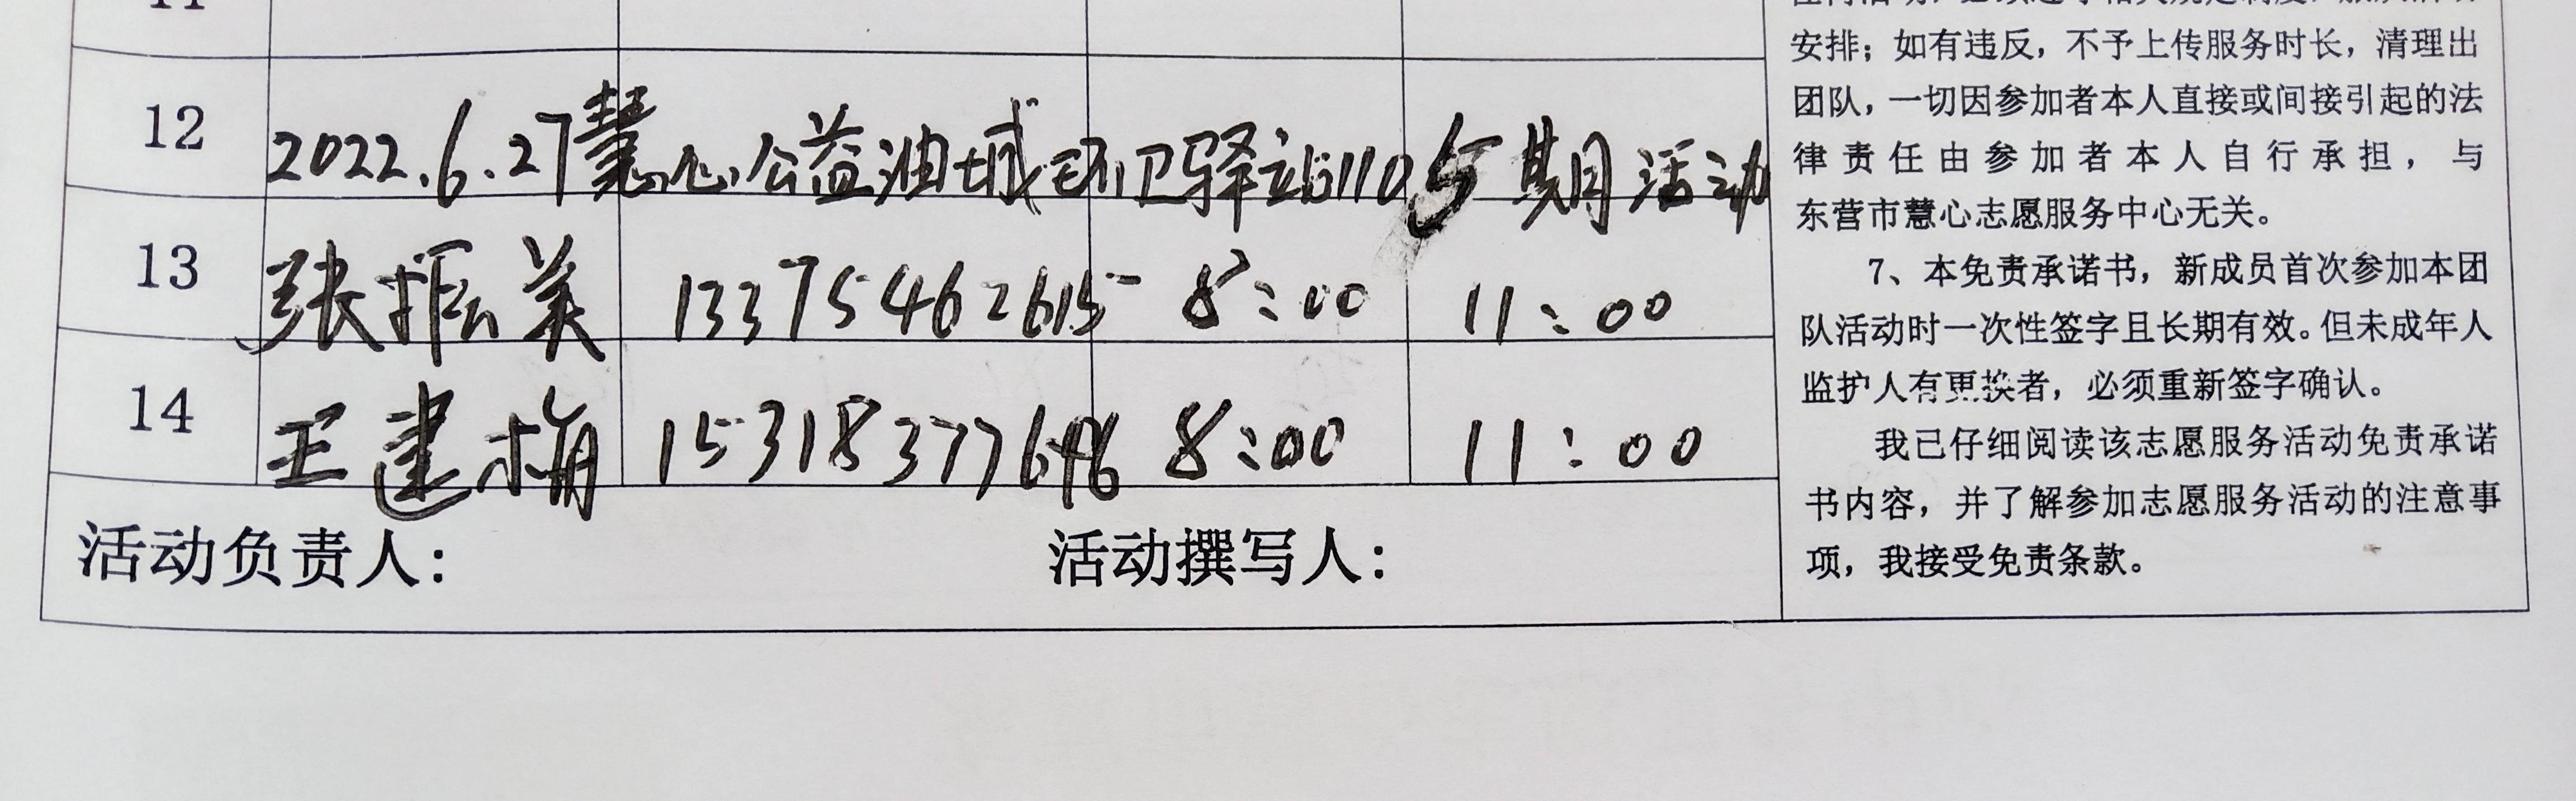 12 2022.6.27慧心公益油城环卫驿站1105期活动
13 张振美 13375462615 8:00 11:00
14 王建梅 8:00 11:00
活动负责人: 活动撰写人:
安排；如有违反，不予上传服务时长，清理出
团队，一切因参加者本人直接或间接引起的法
律责任由参加者本人自行承担，与
东营市慧心志愿服务中心无关。
7、本免责承诺书，新成员首次参加本团
队活动时一次性签字且长期有效。但未成年人
监护人有更换者，必须重新签字确认。
我已仔细阅读该志愿服务活动免责承诺
书内容，并了解参加志愿服务活动的注意事
项，我接受免责条款。